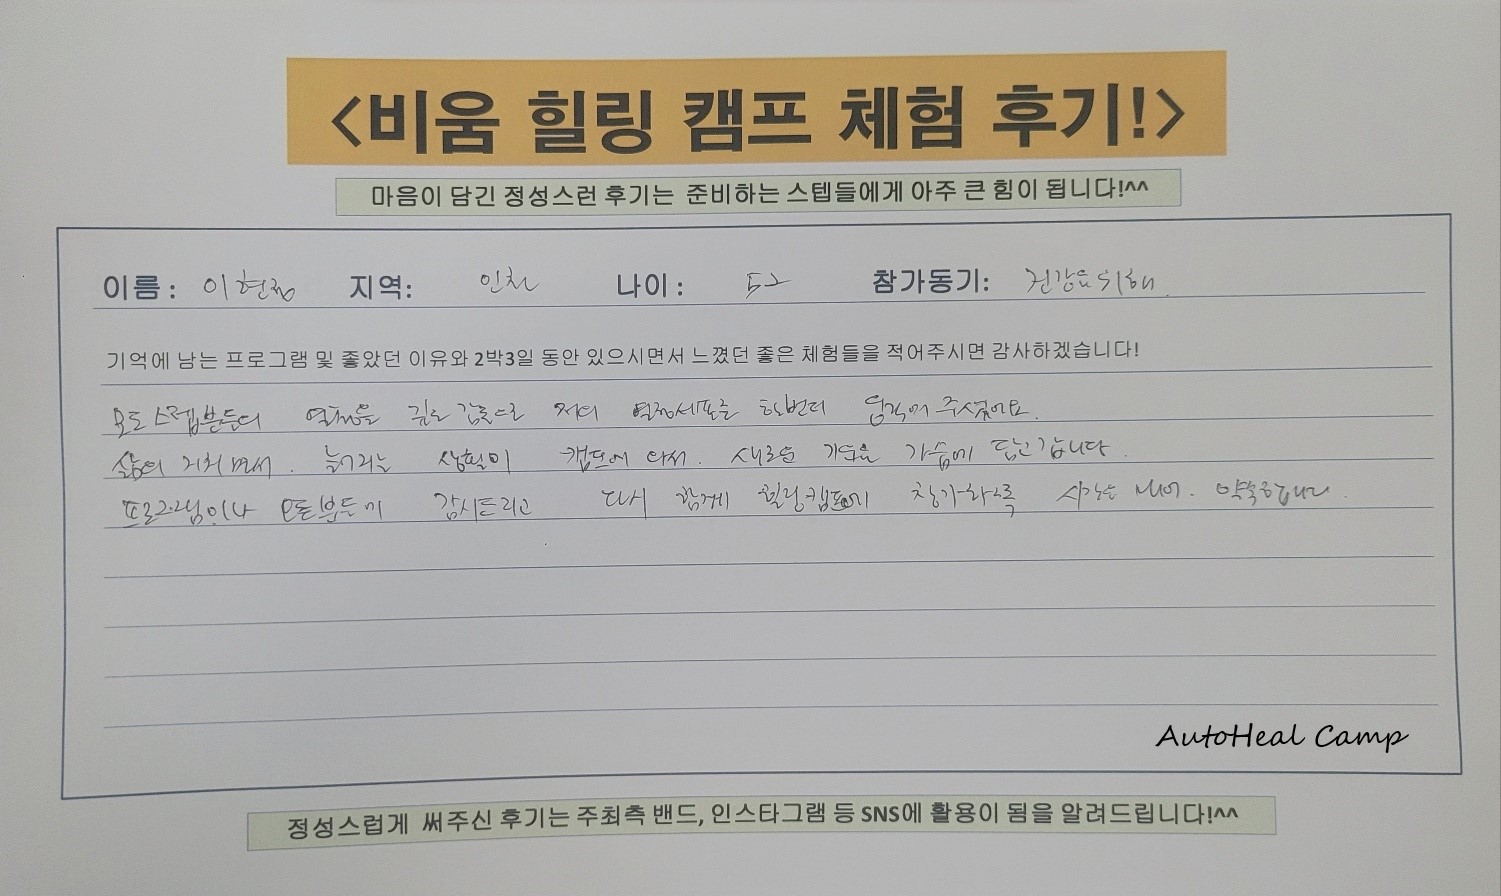 <비움 힐링 캠프 체험 후기!>
마음이 담긴 정성스런 후기는 준비하는 스텝들에게 아주 큰 힘이 됩니다!^^
이름 : 이현정 지역: 인천 나이 : 52 참가동기: 건강을 위해
기억에 남는 프로그램 및 좋았던 이유와 2박3일 동안 있으시면서 느꼈던 좋은 체험들을 적어주시면 감사하겠습니다!
모든 스텝분들의 열정을 저의 열정세포를 한번더 주셨어요.
삶의 지쳐면서. 늘어지는 생활이 캠프에 와서. 새로운 가슴에 담고 갑니다.
프로그램이나 모든분들께 감사드리고 다시 함께 힐링캠프에 참가하도록 시간을 내어. 약속합니다.
AutoHeal Camp
정성스럽게 써주신 후기는 주최측 밴드, 인스타그램 등 SNS에 활용이 됨을 알려드립니다!^^